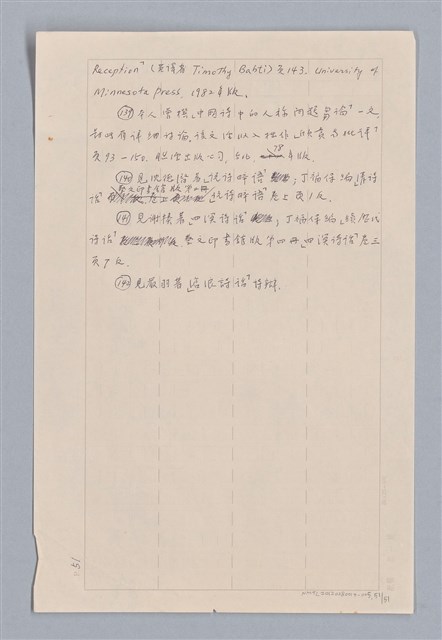 Reception" (英譯者 Timothy Bahti) 頁143. University of
Minnesota Press, 1982年版.
(139) 本人曾撰「中國詩中的人稱問題芻論」一文,
對此有詳細討論. 該文活收入拙作
頁93-150. 聯經出版公司, 台北. 78年版.
(140) 見沈德潛著「說詩晬語」; 丁福保編「清詩
話」藝文印書館版第四冊「說詩晬語」卷上頁1反.
(141) 見謝榛著「四溟詩話」; 丁福保編「續歷代
詩話」藝文印書館版第四冊「四溟詩話」卷三
頁7反.
(142) 見嚴羽著「滄浪詩話」詩辯.
P51
51/51